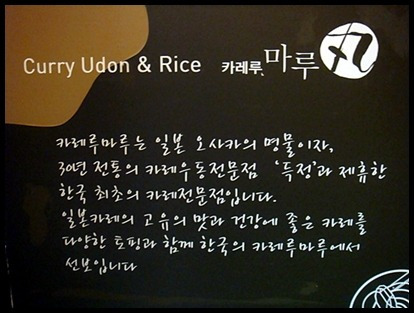 Curry Udon & Rice 카레루마루 丸
카레루마루는 일본 오사카의 명물이자,
30년 전통의 카레우동전문점 '득정'과 제휴한
한국 최초의 카레전문점입니다.
일본카레의 고유의 맛과 건강에 좋은 카레를
다양한 토핑과 함께 한국의 카레루마루에서
선보입니다